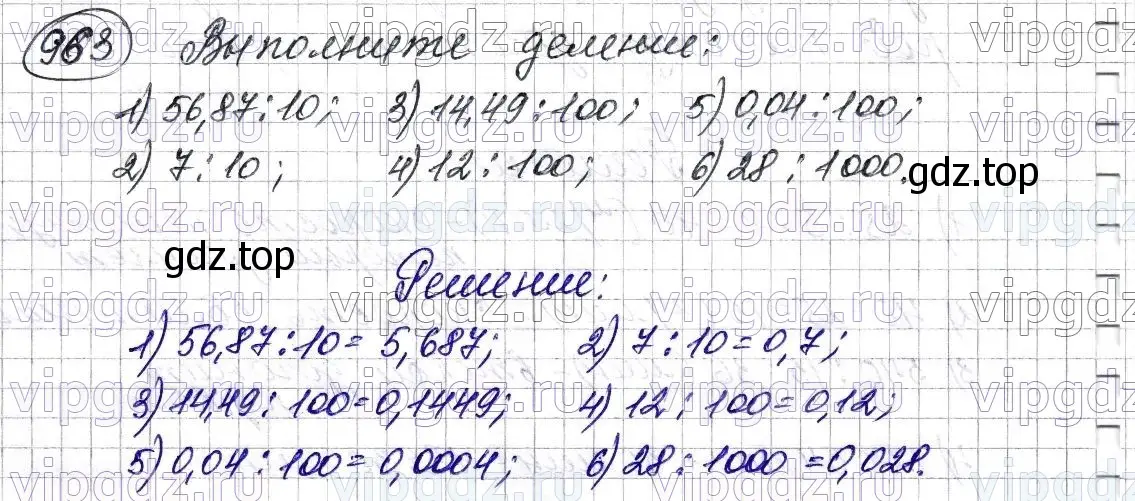 963 Выполните деление:
1) 56,87 : 10; 3) 14,49 : 100; 5) 0,04 : 100;
2) 7 : 10; 4) 12 : 100; 6) 28 : 1000.
gdz.top
gdz.top
Решение:
1) 56,87 : 10 = 5,687; 2) 7 : 10 = 0,7;
3) 14,49 : 100 = 0,1449; 4) 12 : 100 = 0,12;
5) 0,04 : 100 = 0,0004; 6) 28 : 1000 = 0,028.
vipgdz.ru